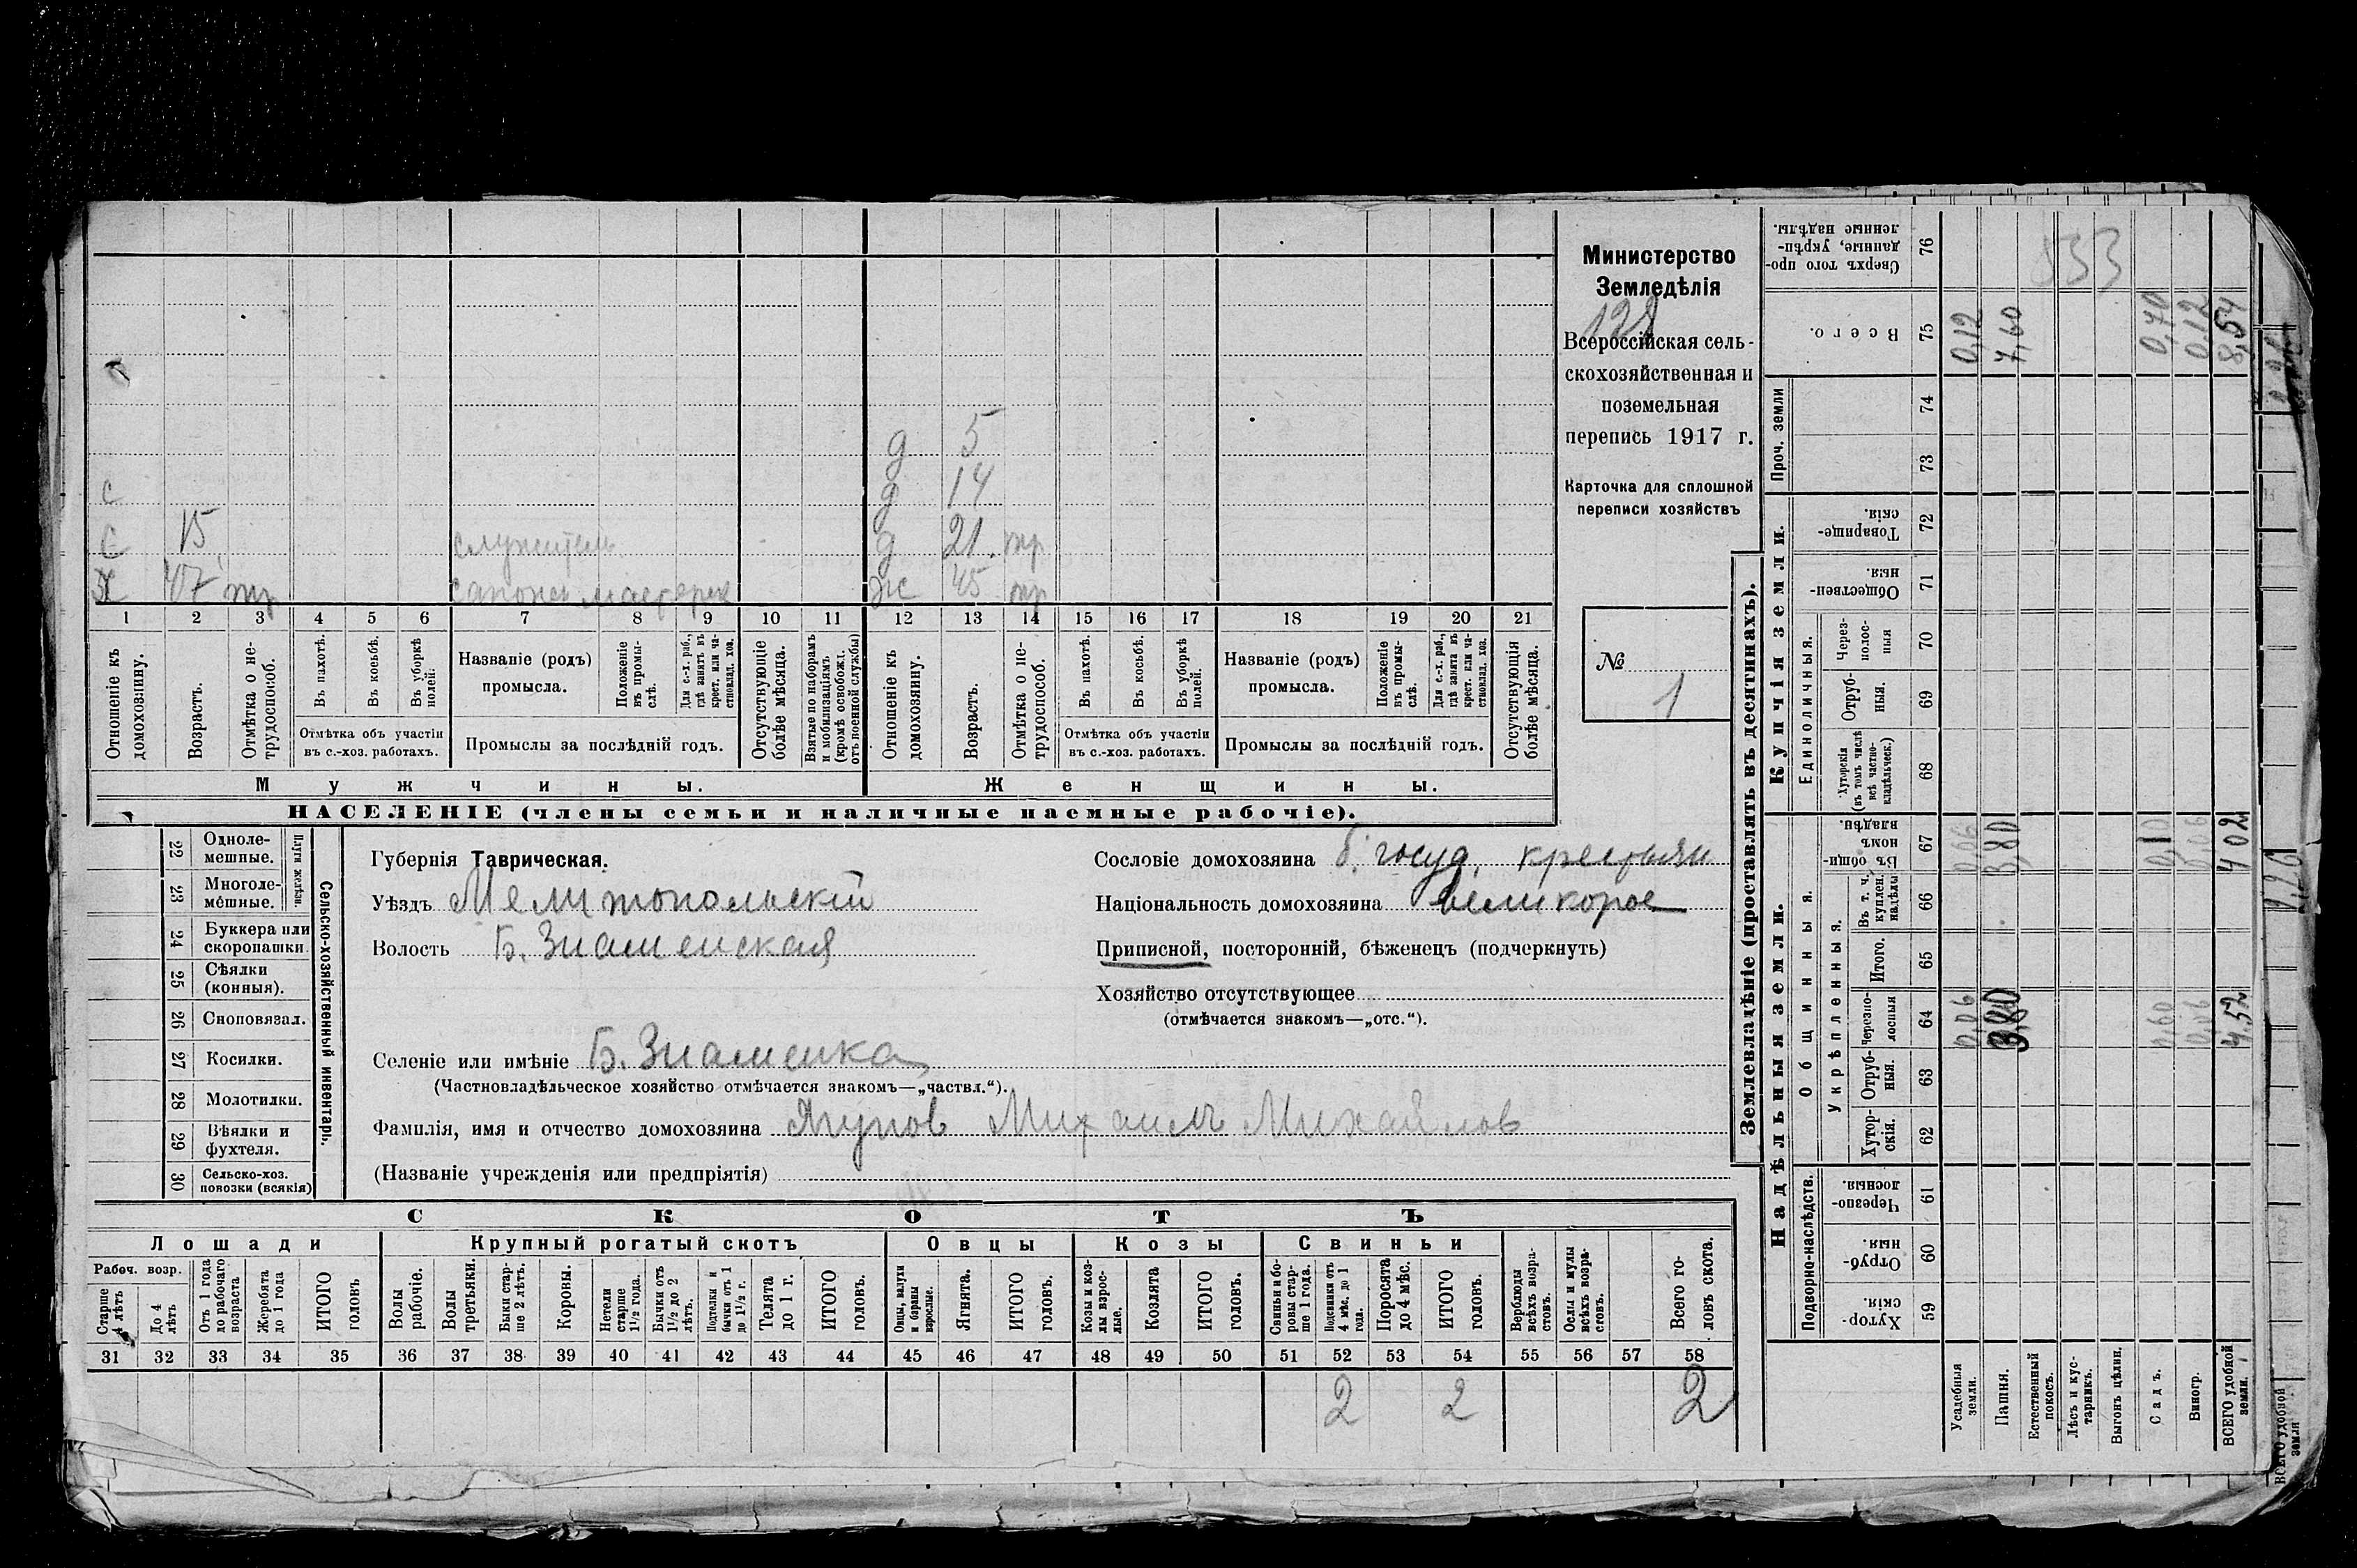 Министерство
Земледѣлія
128
Всероссійская сель-
скохозяйственная и
поземельная
перепись 1917 г.
Карточка для сплошной
переписи хозяйствъ
№
1
д 5
д 14
с
с 15 служитель д 21 тр
Х 47 тр сапожн мастерск ж 45 тр
1 2 3 4 5 6 7 8 9 10 11 12 13 14 15 16 17 18 19 20 21
Отношеніе къ домохозяину.
Возрастъ.
Отмѣтка о не-трудоспособ.
Въ пахотѣ.
Въ косьбѣ.
Въ уборкѣ полей.
Отмѣтка объ участіи
въ с.-хоз. работахъ.
Названіе (родъ)
промысла.
Положеніе въ промы-слѣ.
Для с.-х. раб., гдѣ занятъ въ крест. или ча-стновлад. хоз.
Промыслы за послѣдній годъ.
Отсутствующіе болѣе мѣсяца.
Взятые по наборамъ и мобилизаціямъ (кромѣ освобожд. отъ военной службы)
Отношеніе къ домохозяину.
Возрастъ.
Отмѣтка о не-трудоспособ.
Въ пахотѣ.
Въ косьбѣ.
Въ уборкѣ полей.
Отмѣтка объ участіи
въ с.-хоз. работахъ.
Названіе (родъ)
промысла.
Положеніе въ промы-слѣ.
Для с.-х. раб., гдѣ занята въ крест. или ча-стновлад. хоз.
Промыслы за послѣдній годъ.
Отсутствующія болѣе мѣсяца.
Мужчины. Женщины.
НАСЕЛЕНІЕ (члены семьи и наличные наемные рабочіе).
Сельско-хозяйственный инвентарь.
Плуги желѣзн.
22 Одноле-мешные.
23 Многоле-мешные.
24 Буккера или скоропашки.
25 Сѣялки (конныя).
26 Сноповязал.
27 Косилки.
28 Молотилки.
29 Вѣялки и фухтеля.
30 Сельско-хоз. повозки (всякія)
Губернія Таврическая.
Уѣздъ Мелитопольскій
Волость Б. Знаменская
Селеніе или имѣніе Б. Знаменка
(Частновладѣльческое хозяйство отмѣчается знакомъ—„частвл.“).
Фамилія, имя и отчество домохозяина Ягупов Михаилъ Михайлов
(Названіе учрежденія или предпріятія)
Сословіе домохозяина б. госуд. крестьян
Національность домохозяина великорос
Приписной, посторонній, бѣженецъ (подчеркнуть)
Хозяйство отсутствующее
(отмѣчается знакомъ—„отс.“).
СКОТЪ
Лошади Крупный рогатый скотъ Овцы Козы Свиньи
Рабоч. возр.
Старше 4 лѣтъ
До 4 лѣтъ
Отъ 1 года до рабочаго возраста
Жеребята до 1 года
ИТОГО головъ
Волы рабочіе.
Волы третьяки.
Быки стар-ше 2 лѣтъ.
Коровы.
Нетели старше 1½ года.
Бычки отъ 1½ до 2 лѣтъ.
Подтелки и бычки отъ 1 до 1½ г.
Телята до 1 г.
ИТОГО головъ.
Овцы, валухи и бараны взрослые.
Ягнята.
ИТОГО головъ.
Козы и коз-лы взрос-лые.
Козлята
ИТОГО головъ.
Свиньи и бо-ровы стар-ше 1 года.
Подсвинки отъ 4 мѣс. до 1 года.
Поросята до 4 мѣс.
ИТОГО головъ.
Верблюды всѣхъ возра-стовъ.
Ослы и мулы всѣхъ возра-стовъ.
Всего го-ловъ скота.
31 32 33 34 35 36 37 38 39 40 41 42 43 44 45 46 47 48 49 50 51 52 53 54 55 56 57 58
2 2 2
Землевладѣніе (проставлять въ десятинахъ).
Надѣльныя земли.
Купчія земли.
Проч. земли
Подворно-наслѣдств.
Общинныя.
Укрѣпленныя.
Единоличныя.
59 Хутор-скія.
60 Отруб-ныя.
61 Черезпо-лосныя.
62 Хутор-скія.
63 Отруб-ныя.
64 Черезпо-лосныя
65 Итого.
66 Въ т. ч. куплен. надѣлы
67 Въ общи-номъ владѣн.
68 Хуторскія (въ томъ числѣ всѣ частно-владѣльческ.)
69 Отруб-ныя.
70 Через-полос-ныя
71 Обществен-ныя.
72 Товарище-скія.
73
74
75 Всего.
76 Сверхъ того про-данные, укрѣп-ленные надѣлы.
Усадебныя земли. 0,06 0,06 0,12
Пашня. 3,80 3,80 7,60
Естественный покосъ.
Лѣсъ и кус-тарникъ.
Выгонъ цѣлин.
Садъ. 0,60 0,10 0,70
Виногр. 0,06 0,06 0,12
ВСЕГО удобной земли. 4,52 4 02 8,54
533
ВСЕГО удобной земли